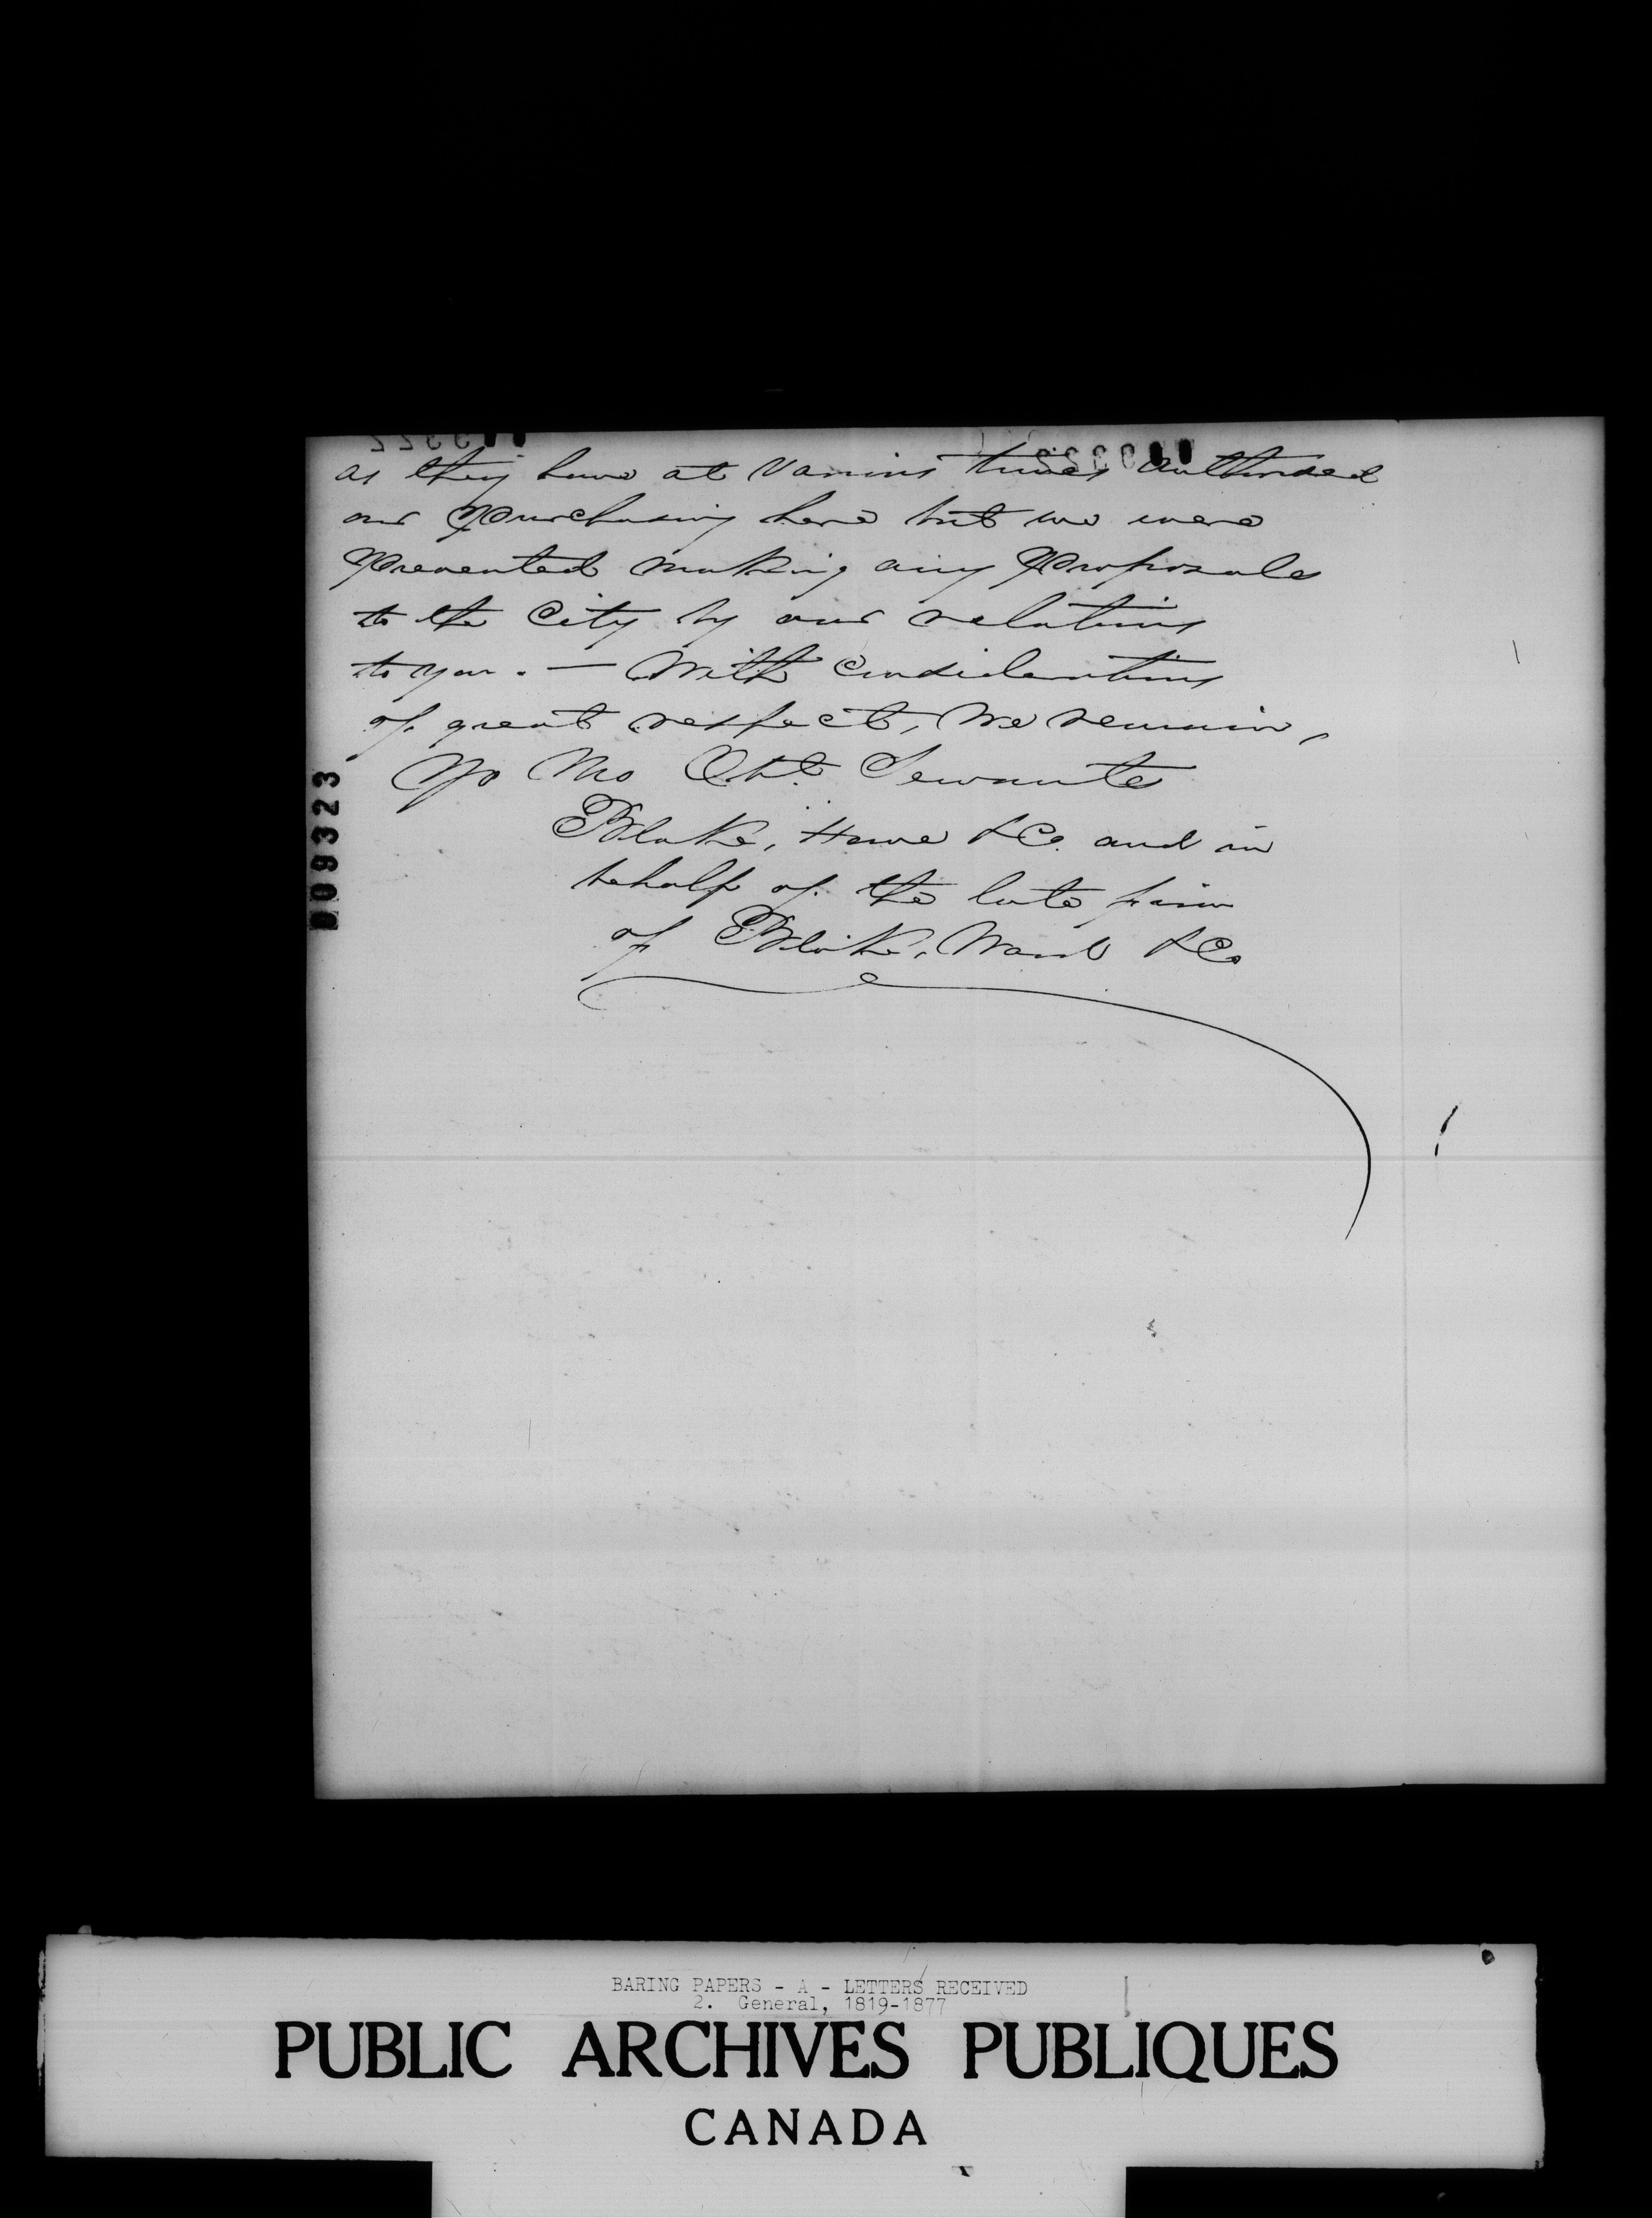 as they have at various times authorized
our purchasing here but we were
prevented making any proposals
to the City by our relations
to you. — With considerations
of great respect, we remain,
Yr Mo Obt. Servants
Blake, Howe & Co. and in
behalf of the late firm
of Blake, Ward & Co
009323
BARING PAPERS - A - LETTERS RECEIVED
2. General, 1819-1877
PUBLIC ARCHIVES PUBLIQUES
CANADA